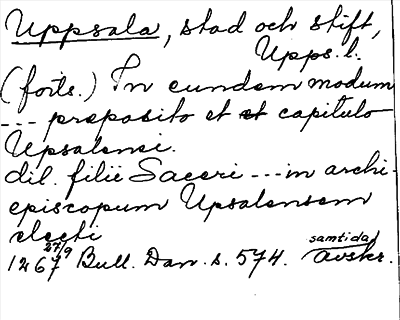 Uppsala, stad och stift,
Upps. l.
(forts.) In eundem modum
--- preposito et et capitulo
Upsalensi.
dil. filii Saceri --- in archi-
episcopum Upsalensem
electi
1267 27/9 Bull. Dan. s. 574. samtida avskr.